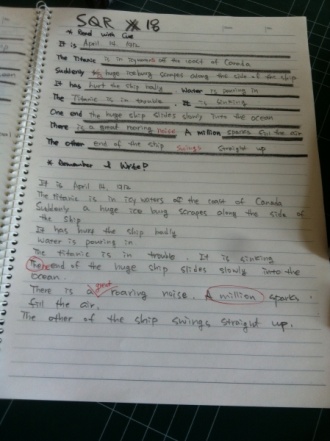 SQR 18
* Read with Cue
It is April 14, 1912
The Titanic is in icy waters of the coast of Canada
Suddenly a huge iceburg scrapes along the side of the ship
It has hurt the ship badly Water is pouring in
The Titanic is in trouble. It is sinking
One end the huge ship slides slowly into the ocean
There is a great roaring noise. A million sparks fill the air
The other end of the ship swings straight up
* Remember & Write?
It is April 14, 1912
The titanic is in icy waters of the coast of Canada
Suddenly a huge ice burg scrapes along the side of
the ship
It has hurt the ship badly
Water is pouring in
The titanic is in trouble. It is sinking
The end of the huge ship slides slowly into the
ocean.
There is a great roaring noise. A million sparks
fill the air.
The other of the ship swings straight up.